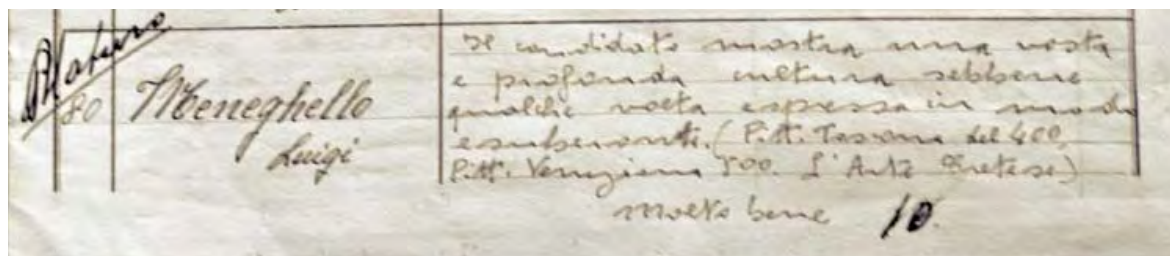 Maturo
20
Meneghello
Luigi
Il candidato mostra una vasta
e profonda cultura sebbene
qualche volta espressa in modi
esuberanti. (Pitt. Toscana del 400,
Pitt. Veneziana 500. L'Arte Cretese)
Molto bene 10.